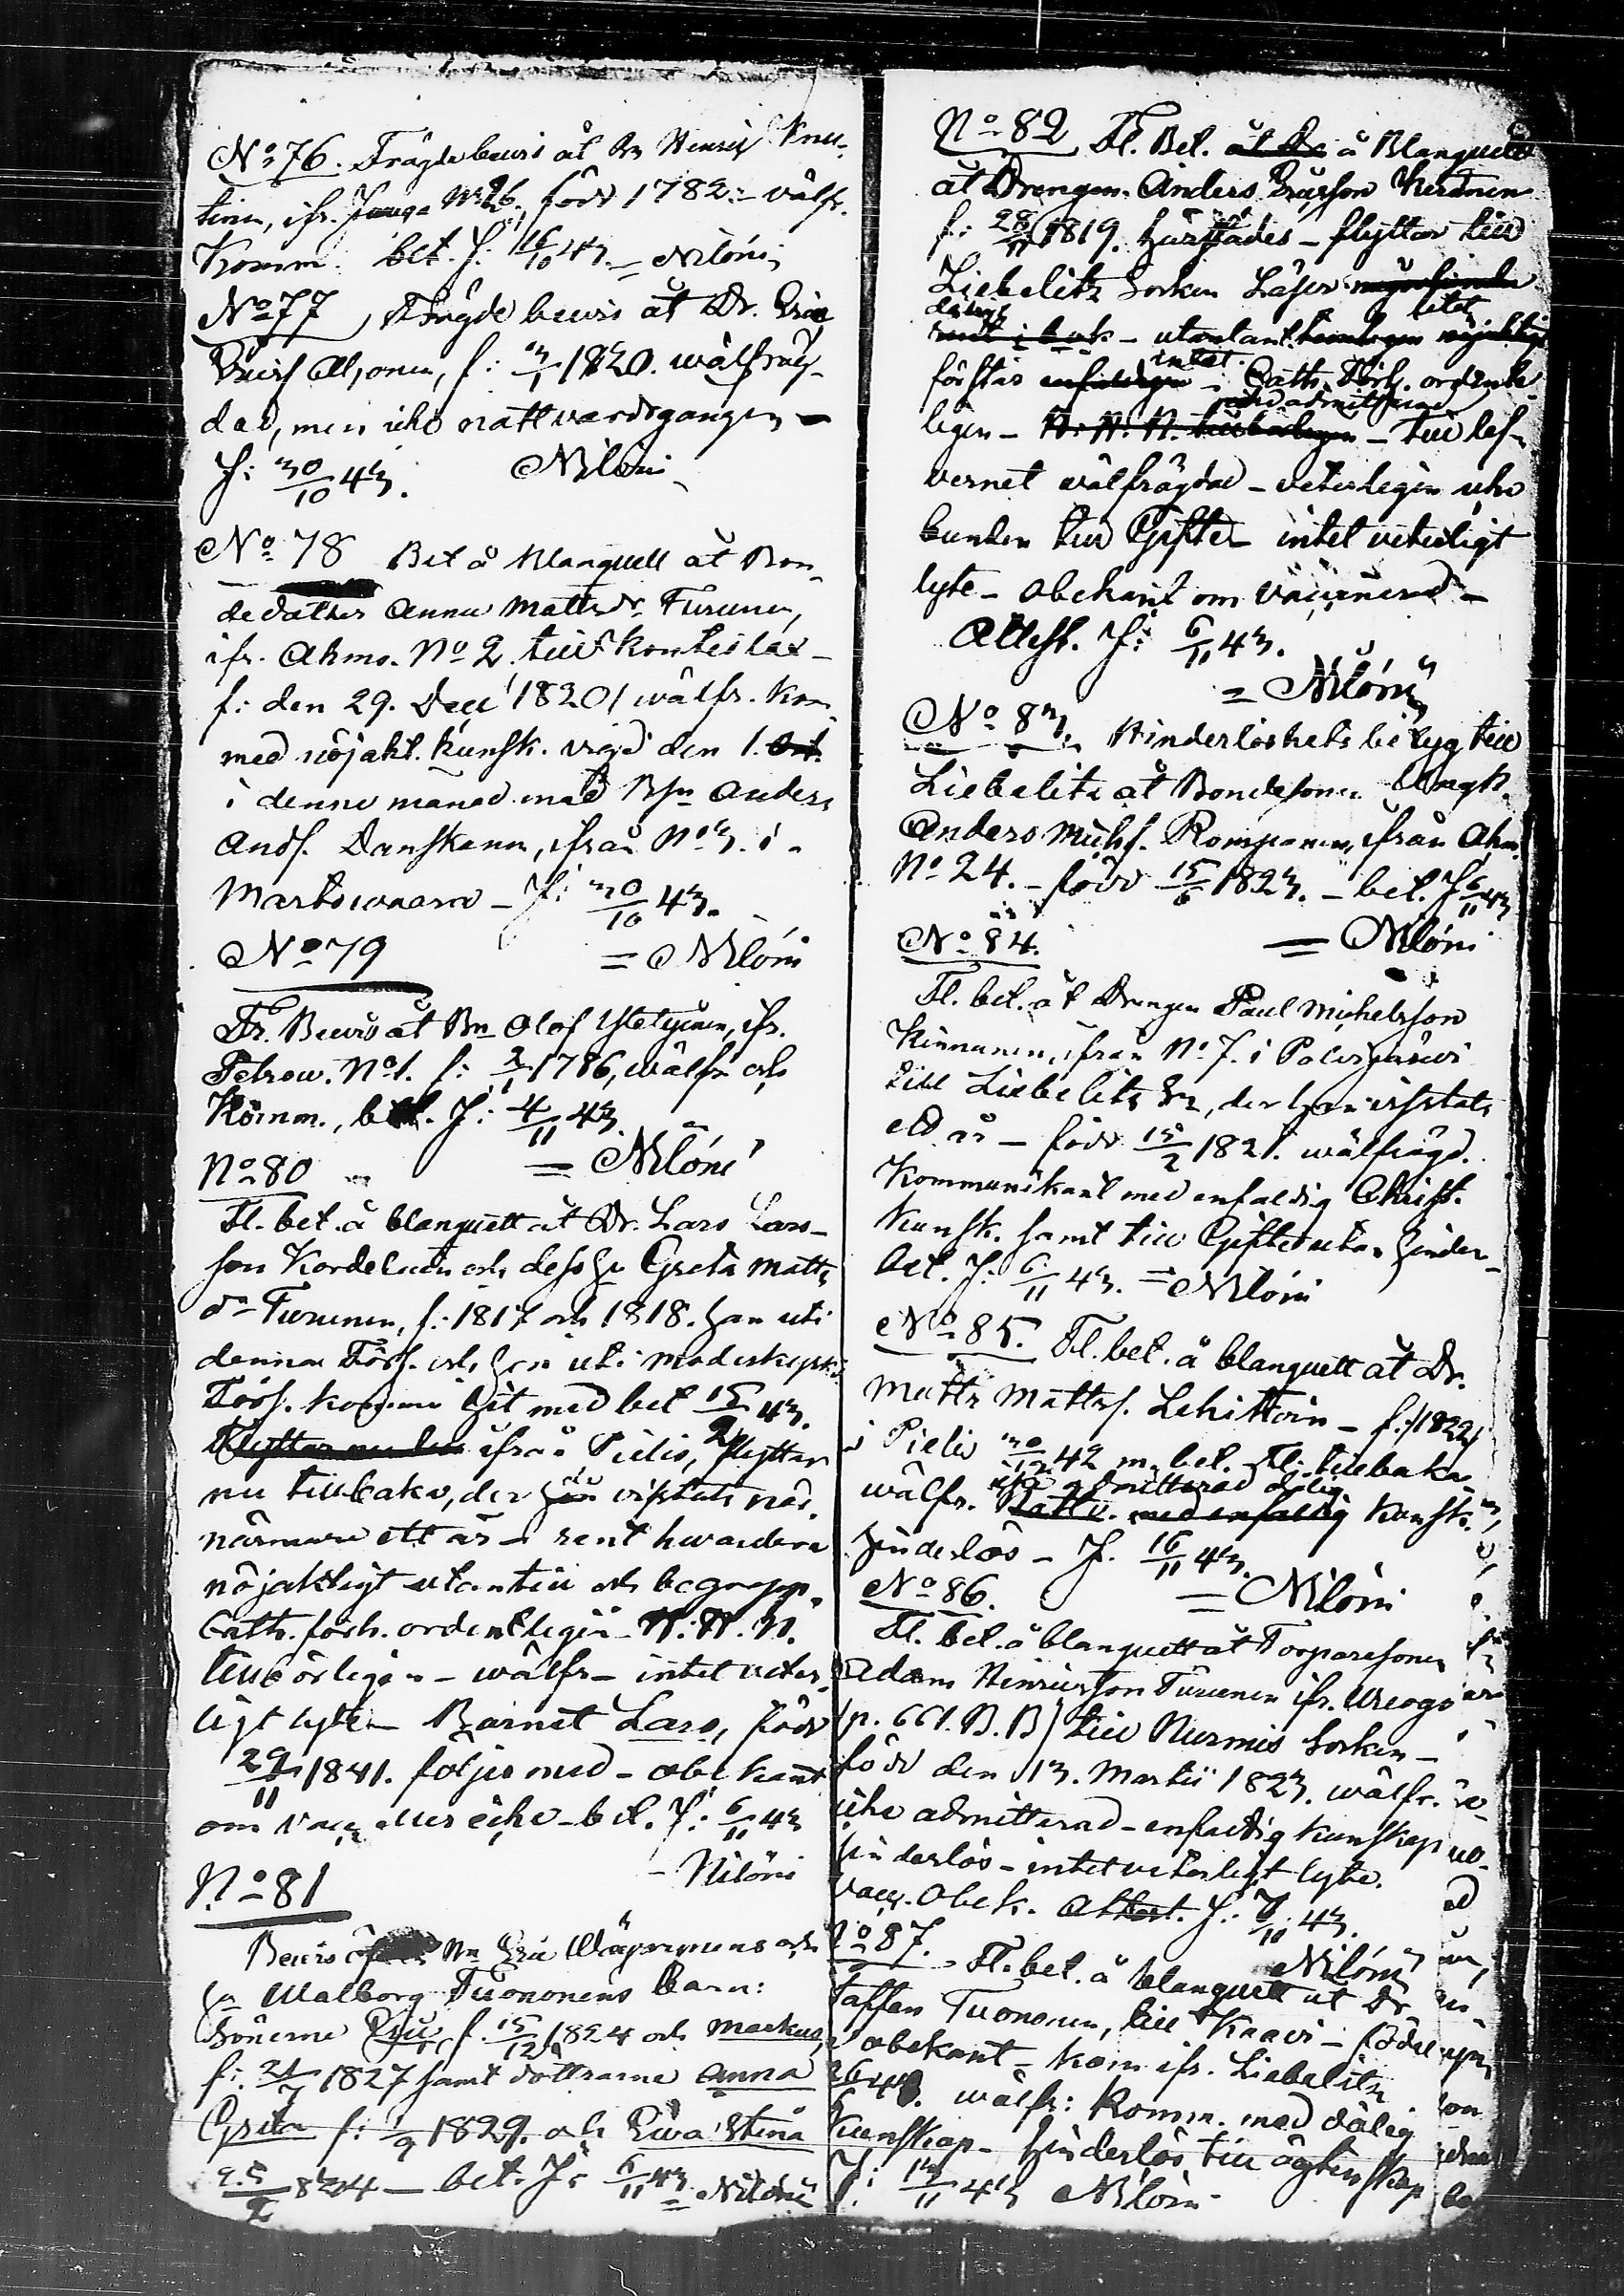 No 76. Frägdebevis åt Bn Henrik Knu-
tinen, ifr. No 26, född 1782 - välfr.
Komm. bet. J: 16/10 43. = Nilóni
No 77 Frägdebevis åt Dr. Eric
f: 1820. wälfräg-
dad, men icke nattvardsgangen -
J: 30/10 43. Nilóni
No 78 Bet å blanquett åt Bon-
dedotter Anna Mattsdr Turunen,
ifr. Ahmo. No 2, till Kontiolax -
f: den 29. Dec 1820 / wälfr. Kom.
med nöjakt. kunsk. vigd den 1.
i denne månad med Bsn Anders
Ands. Danskanen, ifrån No 3. i
Martowaara - J: 30/10 43.
No 79 = Nilóni
Fr. Bewis åt Bn Olof, ifr.
Petrow. No 1. f: 2/1 1786, wälfr och
Komm., bet. J: 4/11 43
No 80 = Nilóni
Fl. bet. å blanquett åt Dr. Lars Lars-
son Kordelain och dess hu Greta Matts
dr Turunen, f: 1817 och 1818. han uti
denna Förs. och hon uti moderkyrko
Förs. komne hit med bet 15/2 43.
ifrån Pielis, flyttar
nu tillbaka, der vistats när-
närmare ett år - rent hwardera
nöjaktigt utantill och begrepp.
Cath. förh. ordentligen - H. H. N.
tillbörligen - wälfr - intet veter-
ligt lyte - Barnet Lars, född
29/11 1841. följer med - obekant
om vacc. eller icke - bet. J: 6/11 43
No 81 - Nilóni
Bewis Bn Eric Wäyrynens och
hu Walborg Tuononens Barn:
Sönerne Eric, f. 15/12 1824 och Markus,
f: 21/7 1827 samt döttrarne Anna
Greta f: 1/9 1829. och Ewa Stina
25/2 834 - bet. J: 6/11 43 = Nilóni
No 82 Fl. Bet. åt Dr å Blanquett
åt Drengen Anders Ersson Kerönen
f: 28/11 1819. härstädes - flyttar till
Liebelitz Socken Läser
dåligt litet
rent i bok - utantant nöjaktigt
intet
förstår enfaldigen - Cath. Förh. ordente-
admitterad
ligen - H. H. N. tillbörligen - till lef-
vernet wälfrägdad - veterligen icke
bunden till Gifte - intet veterligt
lyte - obekant om vaccinerad -
Attest. J: 6/11 43.
= Nilóni
No 83. Hinderlöshets betyg till
Liebelitz åt Bondesonen Ungk.
Anders Michs. Romppanen, ifrån Ahm.
No 24. - född 15/6 1823. - bet. J: 6/11 43
No 84. = Nilóni
Fl. bet. åt Drengen Paul Michelsson
Kinnunen, ifrån No 7. i Polvijärwi
till Liebelits Sn, der han vistats
ett år - född 15/2 1821. wälfrägd.
Kommunikant med enfaldig Christ.
kunsk. samt till Gifte utan hinder -
bet. J: 6/11 43. = Nilóni
No 85. Fl. bet. å blanquett åt Dr.
Matts Mattss. Lehittoin - f: / 1822 /
i Pielis 30/12 42 m. bet. Fl. tillbaka
icke admitterad dålig
wälfr. Nattv. med enfaldig kunsk.
hinderlös - J. 16/11 43.
No 86. = Nilóni
Fl. bet. å blanquett åt Torparesonen
Adam Hinricsson Turunen ifr.
(p. 661. B. B) till Nurmis Socken -
född den 13. Martii 1823. wälfr.
icke admitterad - enfaldig kunskap
hinderlös - intet veterligt lyte.
vacc. obek. Attest. J: 7/11 43.
No 87. Nilóni
Fl. bet. å blanquett åt Dr
Staffan Tuononen, till Kaavi - född
obekant - kom ifr. Liebelitz
wälfr: Komm. med dålig
kunskap - hinderlös till ägtenskap
J: 13/11 43 Nilóni